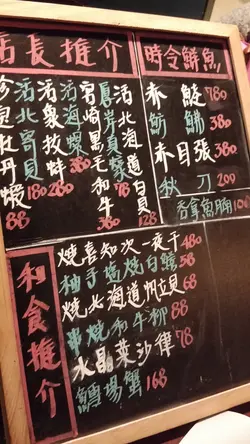 店長推介
活北海道白貝
128
宮崎黒毛和牛
78
380
活海螺
380
活北寄貝
180
珍寶牡丹蝦
88
時令鮮魚
赤鯥 780
魴鮄 380
赤目張 380
秋刀 209
吞拿魚腩
和食推介
燒喜知次一夜干 480
柚子塩燒白鱔 58
燒北海道帆立貝 68
串燒和牛柳 88
水晶菜沙律 78
鱈場蟹 168